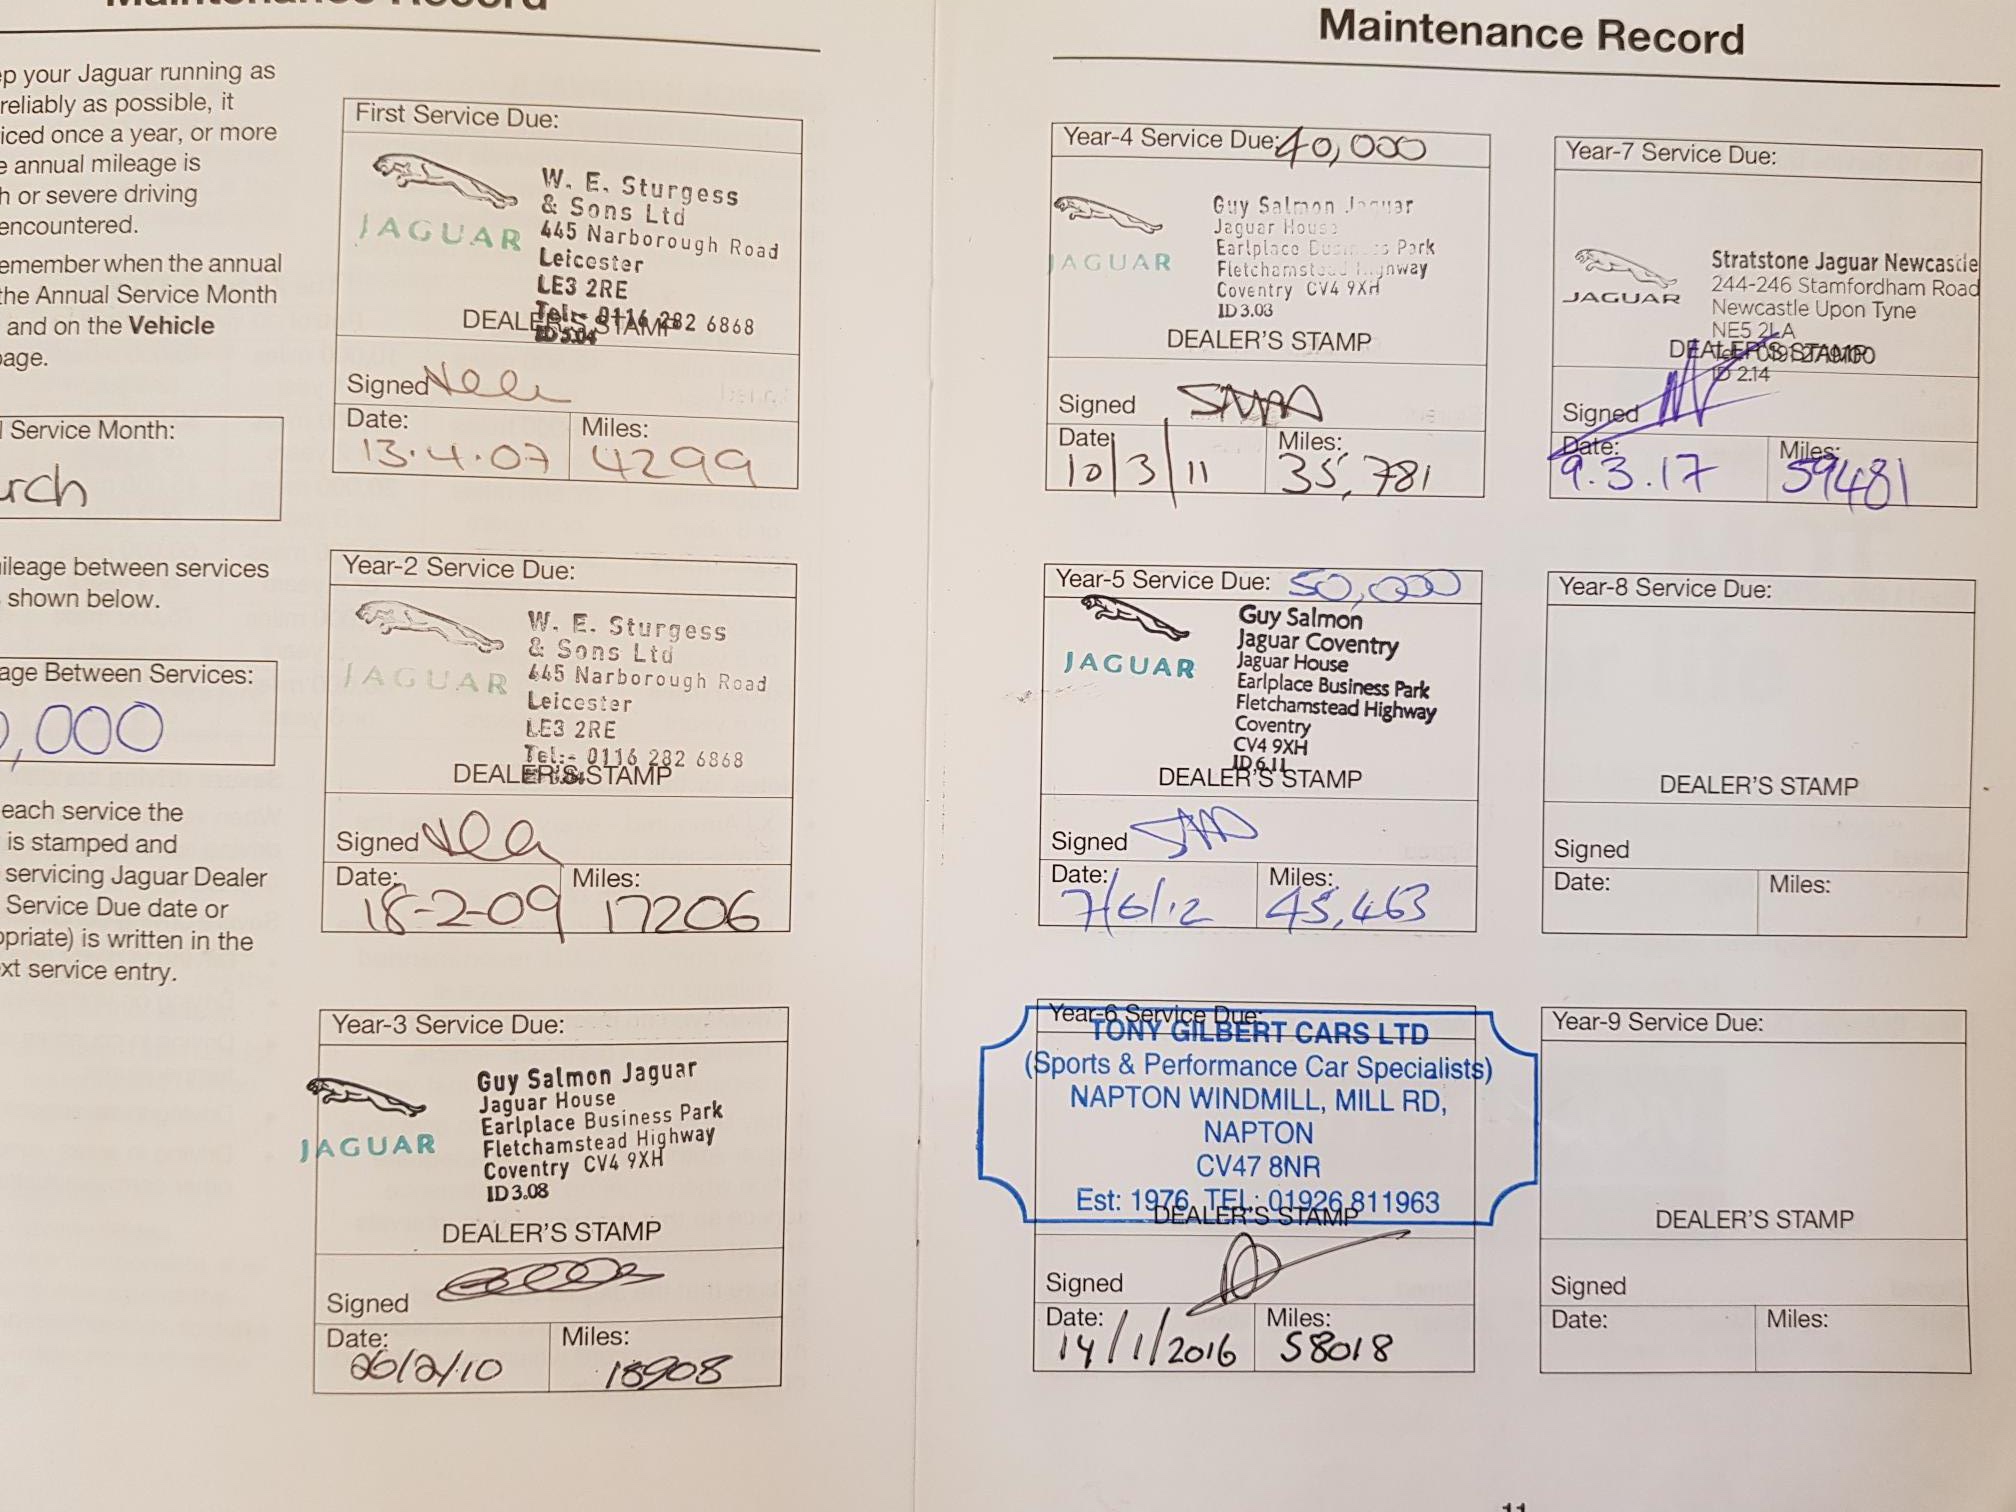 Maintenance Record
ep your Jaguar running as
reliably as possible, it
iced once a year, or more
e annual mileage is
h or severe driving
encountered.
emember when the annual
the Annual Service Month
and on the Vehicle
page.
l Service Month:
rch
ileage between services
shown below.
age Between Services:
0,000
each service the
is stamped and
servicing Jaguar Dealer
Service Due date or
opriate) is written in the
xt service entry.
First Service Due:
JAGUAR
W. E. Sturgess
& Sons Ltd
445 Narborough Road
Leicester
LE3 2RE
Tel:- 0116 282 6868
ID 5.04
DEALER'S STAMP
Signed
Date: 13.4.07
Miles: 4299
Year-2 Service Due:
JAGUAR
W. E. Sturgess
& Sons Ltd
445 Narborough Road
Leicester
LE3 2RE
Tel:- 0116 282 6868
DEALER'S STAMP
Signed
Date: 18-2-09
Miles: 17206
Year-3 Service Due:
JAGUAR
Guy Salmon Jaguar
Jaguar House
Earlplace Business Park
Fletchamstead Highway
Coventry CV4 9XH
ID 3.08
DEALER'S STAMP
Signed
Date: 26/2/10
Miles: 18908
Maintenance Record
Year-4 Service Due: 40,000
JAGUAR
Guy Salmon Jaguar
Jaguar House
Earlplace Business Park
Fletchamstead Highway
Coventry CV4 9XH
ID 3.03
DEALER'S STAMP
Signed
Date 10/3/11
Miles: 35,781
Year-5 Service Due: 50,000
JAGUAR
Guy Salmon
Jaguar Coventry
Jaguar House
Earlplace Business Park
Fletchamstead Highway
Coventry
CV4 9XH
ID 6.11
DEALER'S STAMP
Signed
Date: 7/6/12
Miles: 45,463
Year-6 Service Due:
TONY GILBERT CARS LTD
(Sports & Performance Car Specialists)
NAPTON WINDMILL, MILL RD,
NAPTON
CV47 8NR
Est: 1976, TEL: 01926 811963
DEALER'S STAMP
Signed
Date: 14/1/2016
Miles: 58018
Year-7 Service Due:
JAGUAR
Stratstone Jaguar Newcastle
244-246 Stamfordham Road
Newcastle Upon Tyne
NE5 2LA
DEALER'S STAMP
ID 2.14
Signed
Date: 9.3.17
Miles: 59481
Year-8 Service Due:
DEALER'S STAMP
Signed
Date:
Miles:
Year-9 Service Due:
DEALER'S STAMP
Signed
Date:
Miles:
11